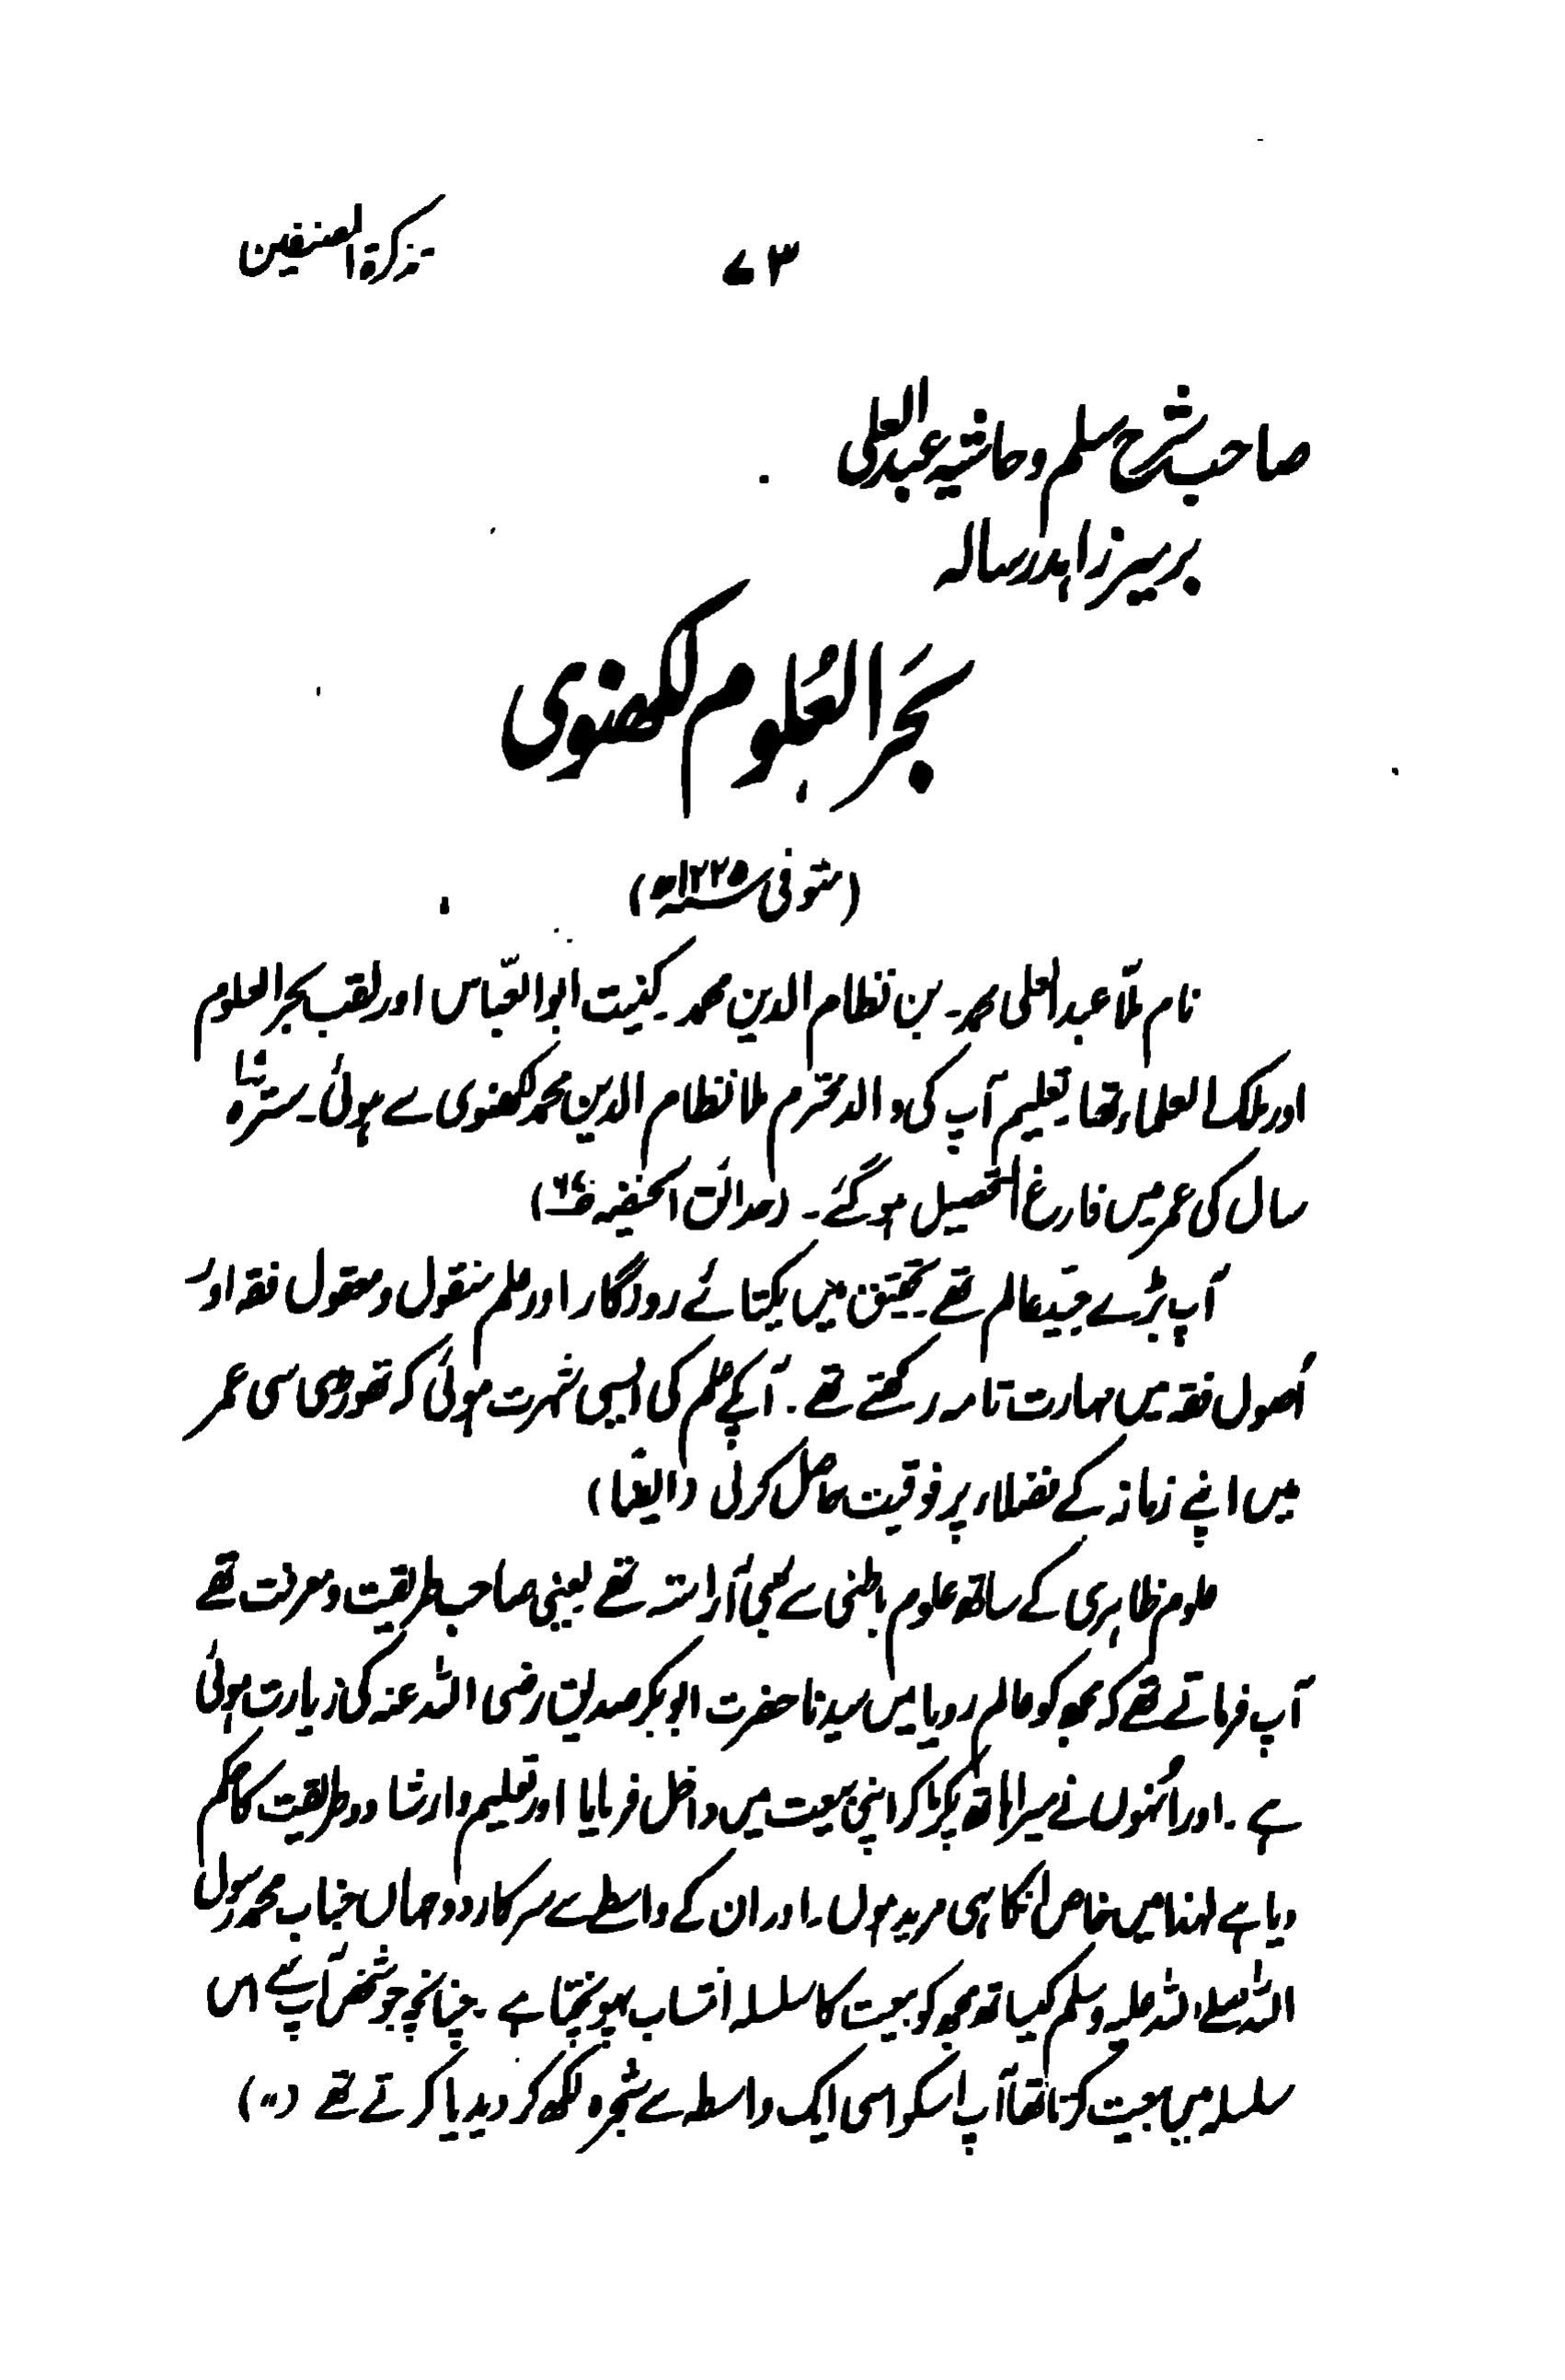 تذکرۃ المصنفین
۷۳
صاحب شرح سلم و حاشیہ عبدالعلی
بر میر زاہد رسالہ
بَحرُ العُلوم لکھنوی
(متوفی ۱۲۲۵ھ)
نام ملّا عبدالعلی محمد۔ بن نظام الدین محمد۔ کنیت ابوالعبّاس اور لقب بحرالعلوم
اور ملک العلماء تھا۔ تعلیم آپ کی والد محترم ملا نظام الدین محمد لکھنوی سے ہوئی۔ سترہ
سال کی عمر میں فارغ التحصیل ہو گئے۔ (حدائق الحنفیہ)
آپ بڑے جیّد عالم تھے تحقیق میں یکتائے روزگار اور علم منقول و معقول فقہ اور
اُصول فقہ میں مہارت تامہ رکھتے تھے۔ آپکے علم کی ایسی شہرت ہوئی کہ تھوڑی سی عمر
میں اپنے زمانہ کے فضلاء پر فوقیت حاصل کرلی (ایضاً)
علوم ظاہری کے ساتھ علوم باطنی سے بھی آراستہ تھے یعنی صاحب طریقیت و معرفت تھے
آپ فرماتے تھے کہ مجھ کو عالم رویا میں سیدنا حضرت ابو بکر صدیق رضی اللہ عنہ کی زیارت ہوئی
ہے۔ اور اُنہوں نے میرا ہاتھ پکڑ کر اپنی بیعت میں داخل فرمایا اور تعلیم و ارشاد و طریقیت کا حکم
دیا ہے لہٰذا میں خاص انکا ہی مرید ہوں۔ اور ان کے واسطے سے سرکار دو جہاں جناب محمد رسول
اللہ صلے اللہ علیہ وسلم کیساتھ مجھ کو بیعت کا سلسلہ انتساب پہونچتا ہے۔ چنانچہ جو شخص آپ سے اس
سلسلہ میں بیعت کرتا تھا آپ اسکو اسی ایک واسطہ سے شجرہ لکھ کر دیدیا کرتے تھے (〃)